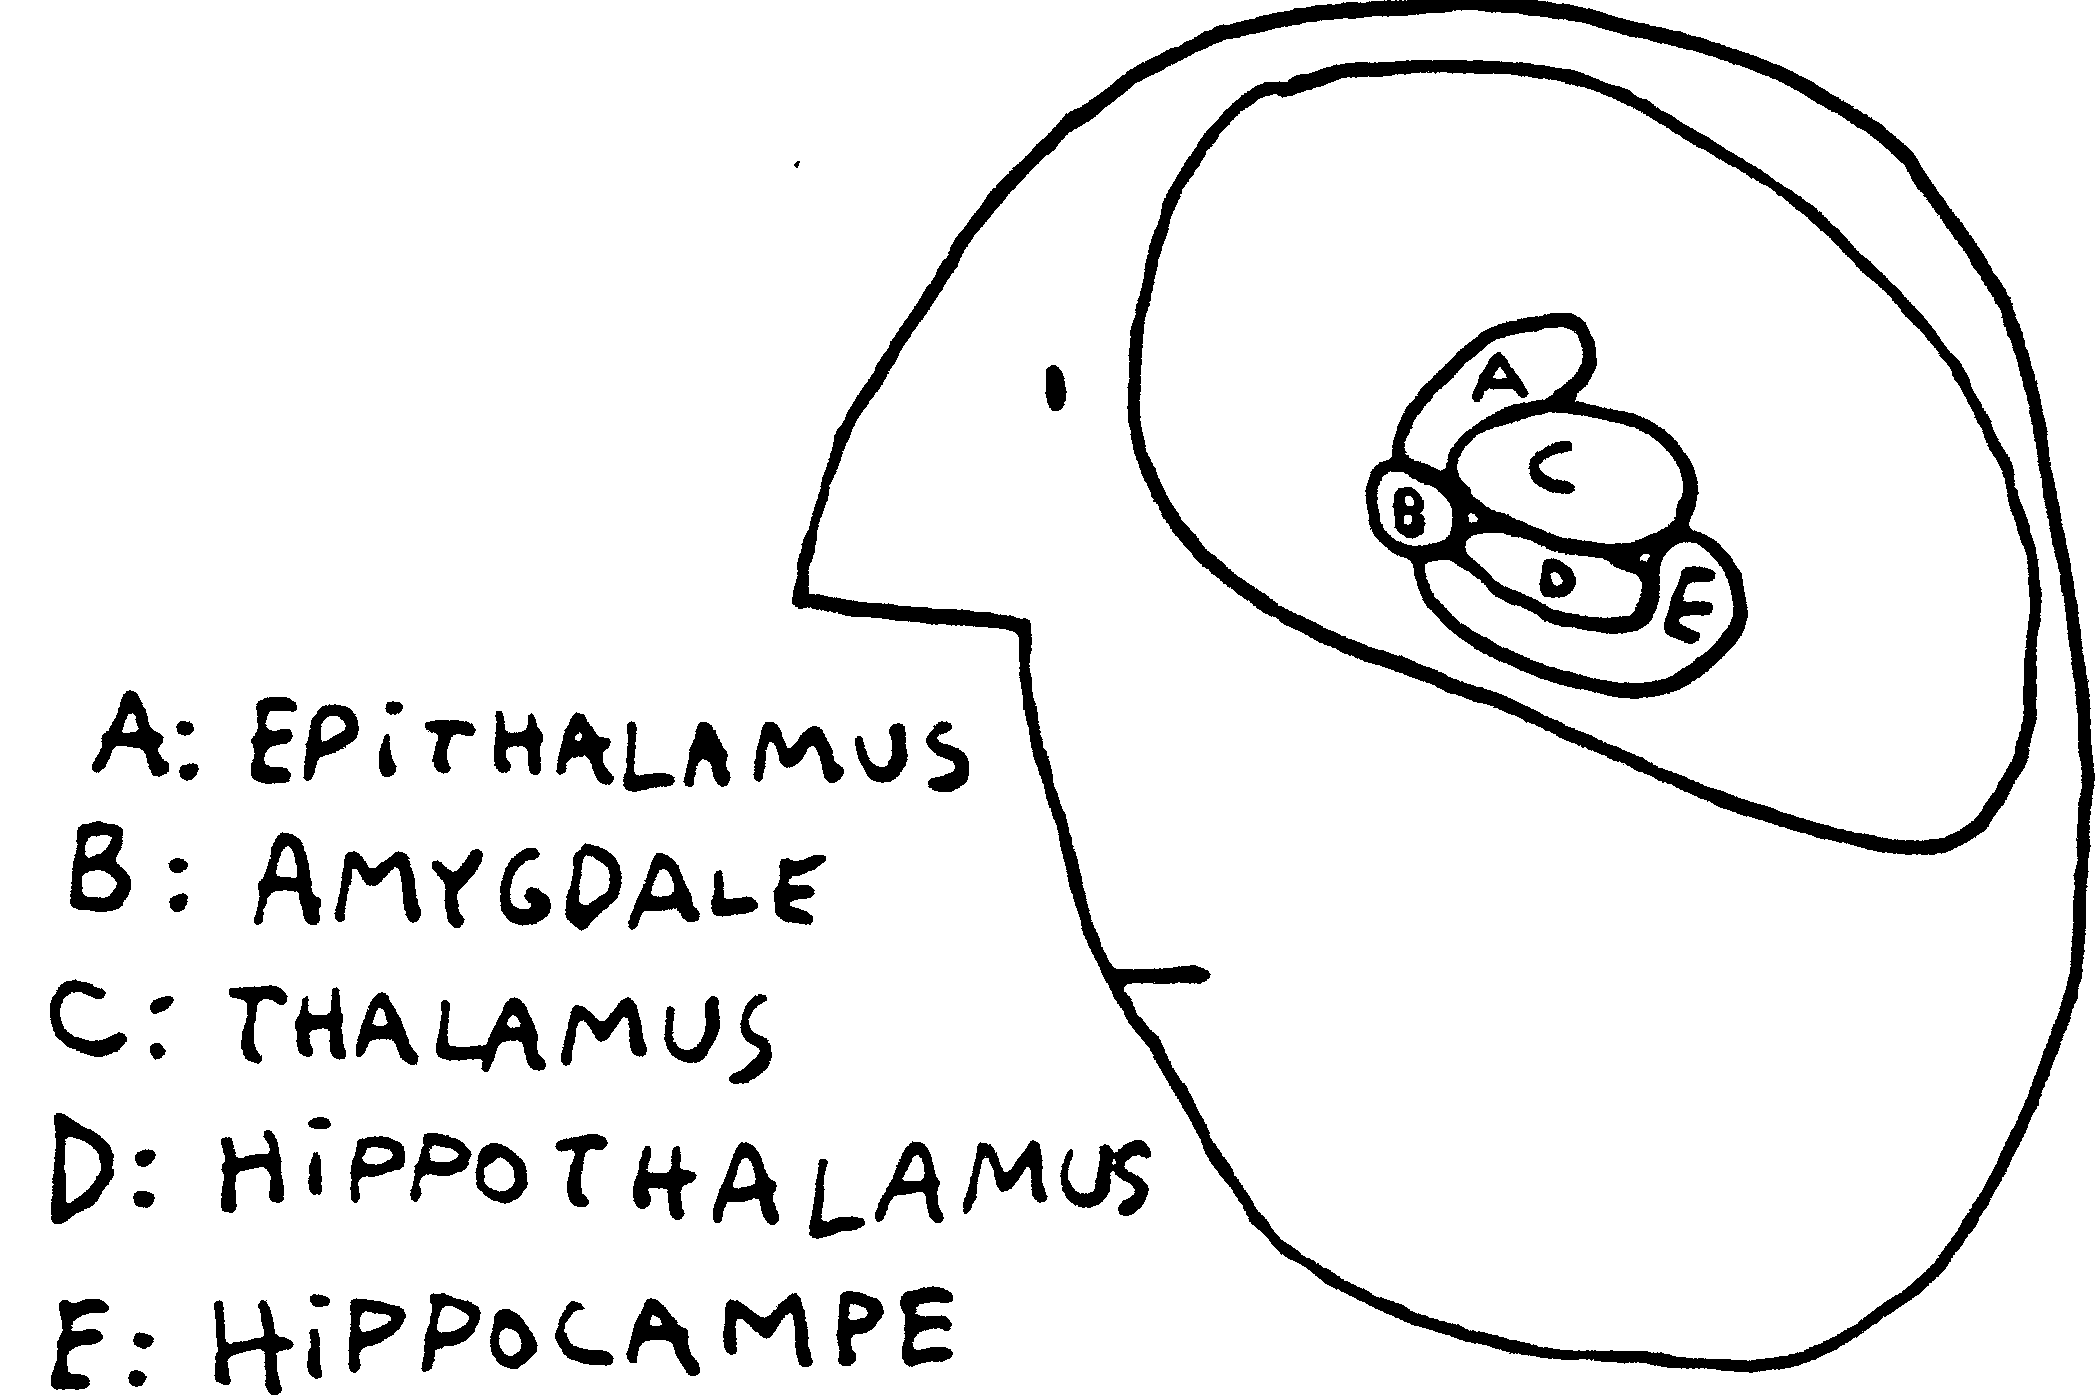 A
C
B
D
E
A: EPiTHALAMUS
B: AMYGDALE
C: THALAMUS
D: HiPPOTHALAMUS
E: HiPPOCAMPE